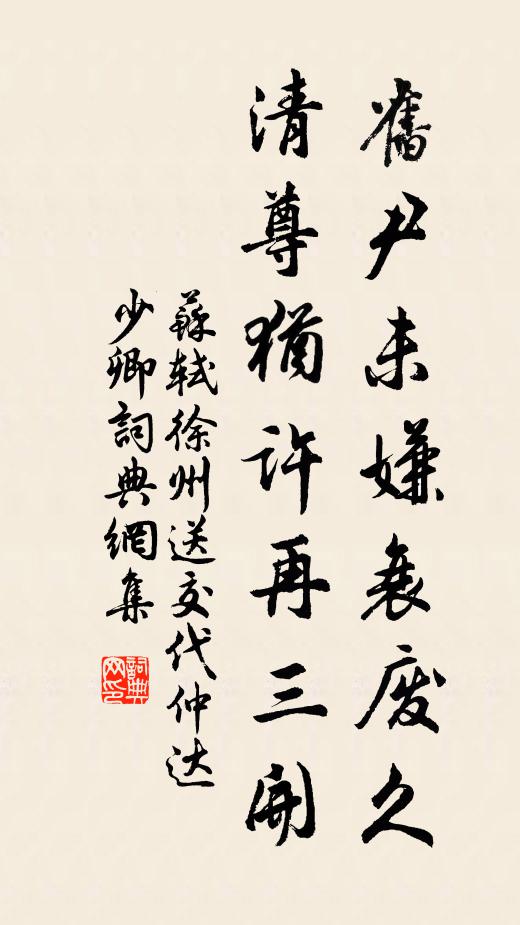 舊尹未嫌衰废久
清尊猶许再三開
蘇軾徐州送交代仲达
少卿詞典網集
詞典网印